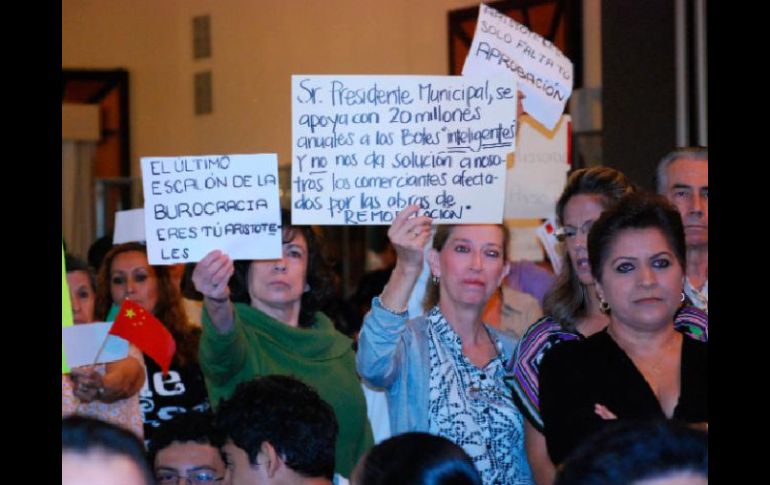 SOLO FALTA TU
APROBACIÓN
Sr. Presidente Municipal, se
apoya con 20 millones
anuales a los Botes "inteligentes"
Y no nos da solución a noso-
tros los comerciantes afecta-
dos por las obras de
"REMODELACION"
EL ÚLTIMO
ESCALÓN DE LA
BUROCRACIA
ERES TÚ ARISTOTE-
LES